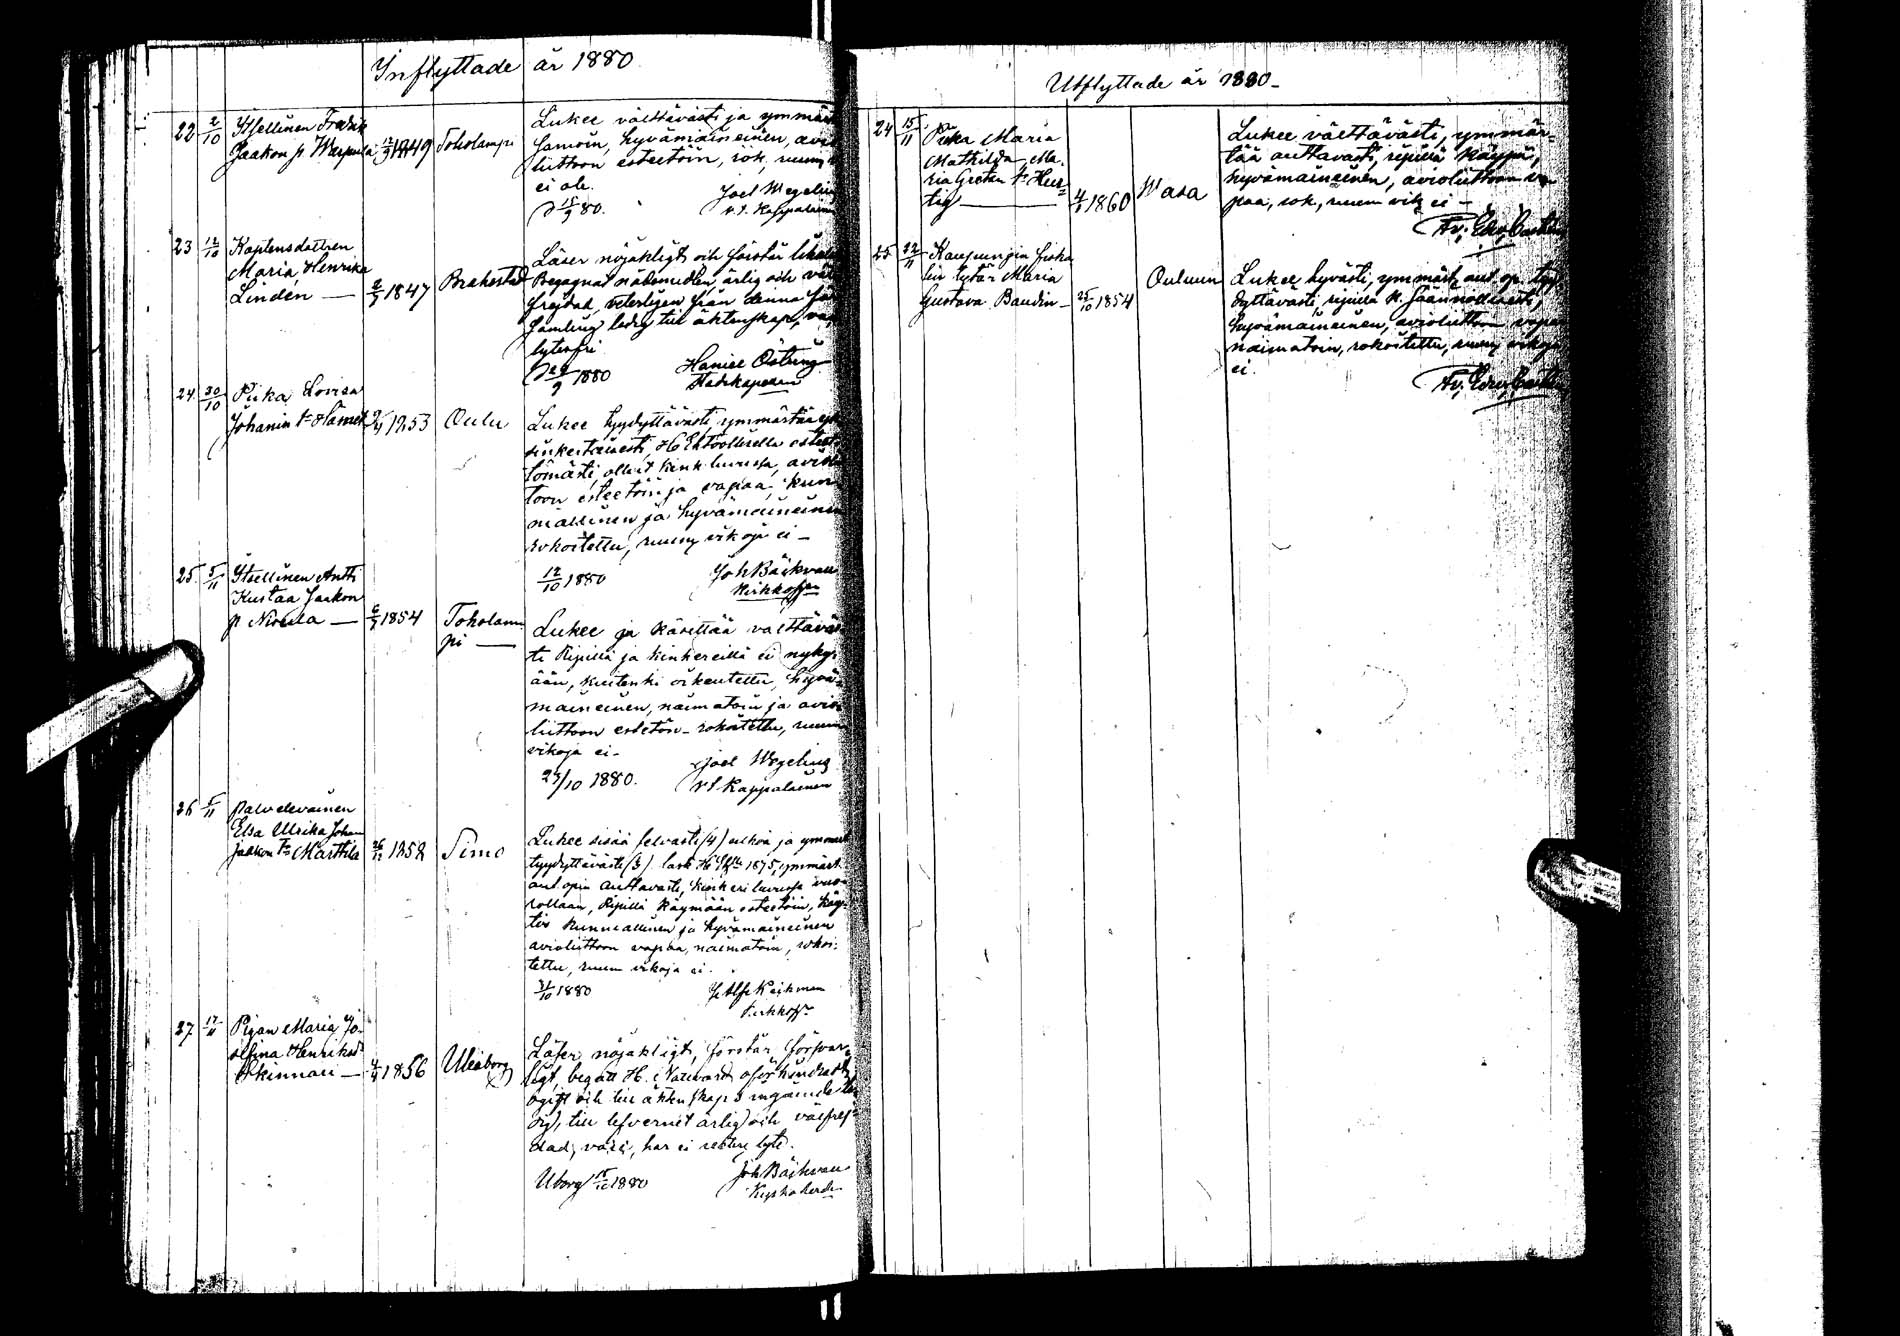 Inflyttade år 1880
22 2/10 Itsellinen Fredrik
Jaakon p. Warpula 12/9 1849 Toholampi
Lukee välttävästi ja ymmär
hyvämaineinen, avio
liittoon esteetöin, rok, ruumi
ei ole.
D 15/9 80. Joel Wegelius
v.t. Kappalainen
23 12/10 Kaptensdottren
Maria Henrika
Lindén — 2/9 1847 Brahestad
Läser nöjakligt och förstår
Begagnat nådemedlen, ärlig och väl
frejdad, veterligen från denna för
samling ledig till äktenskap, vac
lytesfri
D 29/9 1880 Haniel Östring
Stadskapellan
24 30/10 Piika Lovisa
Johanin t. 1853 Oulu
Lukee tyydyttävästi, ymmärtää yk
sinkertaisesti, H. Ehtoollisella esteet
tömästi, ollut kink. luvussa, avioliit
toon esteetöin ja vapaa, kun
niallinen ja hyvämaineinen
rokoitettu, ruumi vikoja ei —
12/10 1880 Joh Bäckvall
Kirkkoh
25 5/11 Itsellinen Antti
Kustaa Jaakon
p Nivala — 6/7 1854 Toholam
pi —
Lukee ja käsittää välttäväs
ti Ripillä ja kinkereillä ei nyky
ään, kuitenki oikeutettu, hyvä-
maineinen, naimatoin ja avio-
liittoon esteetön — rokoitettu, ruumi
vikoja ei —
29/10 1880. Joel Wegelius
v.t. Kappalainen
26 5/11 Palvelevainen
Elsa Ulrika Johan
Jaakon t. Marttila 1858 Simo
Lukee sisää selvästi (4) ulkoa ja ymmärt
tyydyttävästi (3) 1875, ymmärt
aut. opin auttavasti, kinkeri luvussa vuo-
rollaan, Ripillä käymään esteetöin, käy-
tös kunniallinen ja hyvämaineinen
avioliittoon vapaa, naimatoin, rokoi-
tettu, ruum vikoja ei.
31/10 1880
Kirkkoh
27 17/11 Pigan Maria Jo-
sefina Henriksd
Kinnari — 4/4 1856 Uleåborg
Läser nöjakligt, förstår försvar-
ligt, begått H. Nattvard oförhindradt,
ogift och till äktenskaps ingående le-
dig, till lefvernet ärlig och välfrej-
dad, vacc, har ei lyte.
Uborg 1880 Joh Bäckvall
Kyrkoherde
Utflyttade år 1880 —
24 15/11 Piika Maria
Mathilda Ma-
ria Gretan t.
— 4/1 1860 Wasa
Lukee välttävästi, ymmär-
tää auttavasti, ripillä käypä,
hyvämaineinen, avioliittoon va
paa, rok, ruum vik. ei —
25 22/11 Kaupungin fiska
lin tytär Maria
Gustava Baudin — 25/10 1854 Ouluun
Lukee hyvästi, ymmärt. aut. op. tyy
dyttävästi, ripillä k. säännöllisesti,
hyvämaineinen, avioliittoon vapaa
naimatoin, rokoitettu, ruumi vikoja
ei.